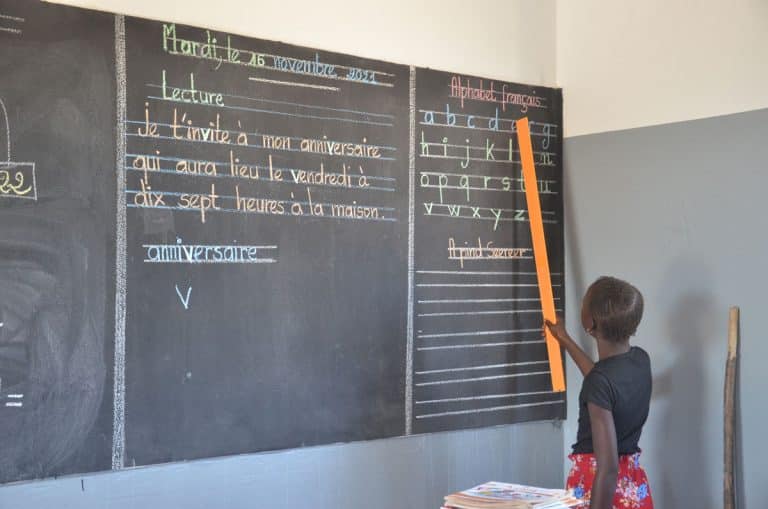 22
Mardi, le 16 novembre 2021
Lecture
Je t'invite à mon anniversaire
qui aura lieu le vendredi à
dix sept heures à la maison.
anniversaire
v
Alphabet français
a b c d e g
h i j k l n
o p q r s u
v w x y z
A pind Seereer